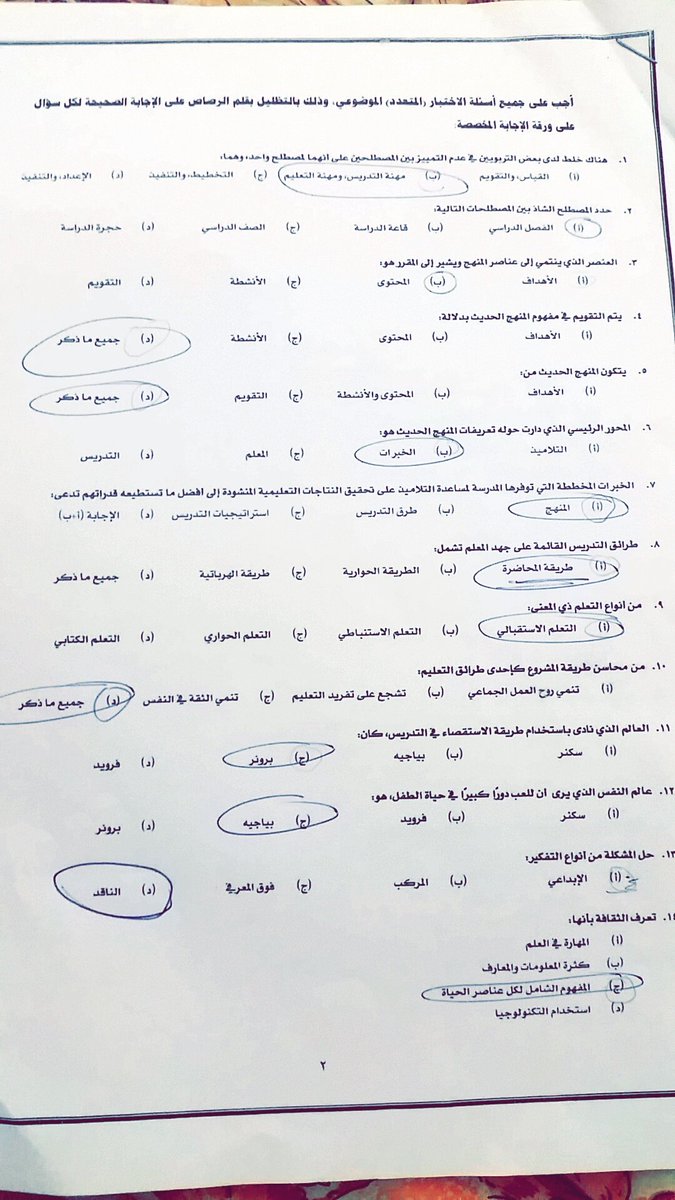 أجب على جميع أسئلة الاختبار (المتعدد) الموضوعي، وذلك بالتظليل بقلم الرصاص على الإجابة الصحيحة لكل سؤال
على ورقة الإجابة المخصصة.
١. هناك خلط لدى بعض التربويين في عدم التمييز بين المصطلحين على أنهما لمصطلح واحد، وهما:
(أ) القياس، والتقويم (ب) مهنة التدريس، ومهنة التعليم (ج) التخطيط، والتنفيذ (د) الإعداد، والتنفيذ
٢. حدد المصطلح الشاذ بين المصطلحات التالية:
(أ) الفصل الدراسي (ب) قاعة الدراسة (ج) الصف الدراسي (د) حجرة الدراسة
٣. العنصر الذي ينتمي إلى عناصر المنهج ويشير إلى المقرر هو:
(أ) الأهداف (ب) المحتوى (ج) الأنشطة (د) التقويم
٤. يتم التقويم في مفهوم المنهج الحديث بدلالة:
(أ) الأهداف (ب) المحتوى (ج) الأنشطة (د) جميع ما ذكر
٥. يتكون المنهج الحديث من:
(أ) الأهداف (ب) المحتوى والأنشطة (ج) التقويم (د) جميع ما ذكر
٦. المحور الرئيسي الذي دارت حوله تعريفات المنهج الحديث هو:
(أ) التلاميذ (ب) الخبرات (ج) المعلم (د) التدريس
٧. الخبرات المخططة التي توفرها المدرسة لمساعدة التلاميذ على تحقيق النتاجات التعليمية المنشودة إلى أفضل ما تستطيعه قدراتهم تدعى:
(أ) المنهج (ب) طرق التدريس (ج) استراتيجيات التدريس (د) الإجابة (أ+ب)
٨. طرائق التدريس القائمة على جهد المعلم تشمل:
(أ) طريقة المحاضرة (ب) الطريقة الحوارية (ج) طريقة الهرباتية (د) جميع ما ذكر
٩. من أنواع التعلم ذي المعنى:
(أ) التعلم الاستقبالي (ب) التعلم الاستنباطي (ج) التعلم الحواري (د) التعلم الكتابي
١٠. من محاسن طريقة المشروع كإحدى طرائق التعليم:
(أ) تنمي روح العمل الجماعي (ب) تشجع على تفريد التعليم (ج) تنمي الثقة في النفس (د) جميع ما ذكر
١١. العالم الذي نادى باستخدام طريقة الاستقصاء في التدريس، كان:
(أ) سكنر (ب) بياجيه (ج) برونر (د) فرويد
١٢. عالم النفس الذي يرى أن للعب دورًا كبيرًا في حياة الطفل، هو:
(أ) سكنر (ب) فرويد (ج) بياجيه (د) برونر
١٣. حل المشكلة من أنواع التفكير:
(أ) الإبداعي (ب) المركب (ج) فوق المعرفي (د) الناقد
١٤. تعرف الثقافة بأنها:
(أ) المهارة في العلم
(ب) كثرة المعلومات والمعارف
(ج) المفهوم الشامل لكل عناصر الحياة
(د) استخدام التكنولوجيا
٢